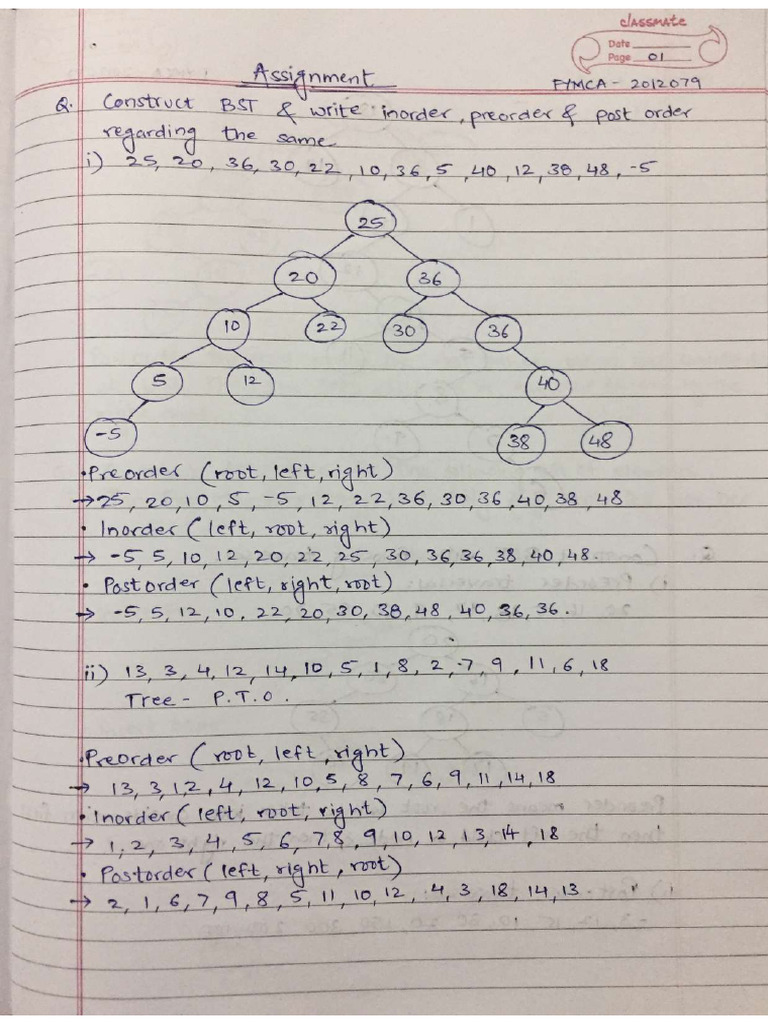 classmate
Date
Page 01
Assignment
FYMCA - 2012079
Q. Construct BST & write inorder, preorder & post order
regarding the same.
i) 25, 20, 36, 30, 22, 10, 36, 5, 40, 12, 38, 48, -5
25
20 36
10 22 30 36
5 12 40
-5 38 48
• Preorder (root, left, right)
→ 25, 20, 10, 5, -5, 12, 22, 36, 30, 36, 40, 38, 48
• Inorder (left, root, right)
→ -5, 5, 10, 12, 20, 22, 25, 30, 36, 36, 38, 40, 48.
• Postorder (left, right, root)
→ -5, 5, 12, 10, 22, 20, 30, 38, 48, 40, 36, 36.
ii) 13, 3, 4, 12, 14, 10, 5, 1, 8, 2, 7, 9, 11, 6, 18
Tree - P.T.O.
• Preorder (root, left, right)
→ 13, 3, 1, 2, 4, 12, 10, 5, 8, 7, 6, 9, 11, 14, 18
• Inorder (left, root, right)
→ 1, 2, 3, 4, 5, 6, 7, 8, 9, 10, 12, 13, 14, 18
• Postorder (left, right, root)
→ 2, 1, 6, 7, 9, 8, 5, 11, 10, 12, 4, 3, 18, 14, 13.